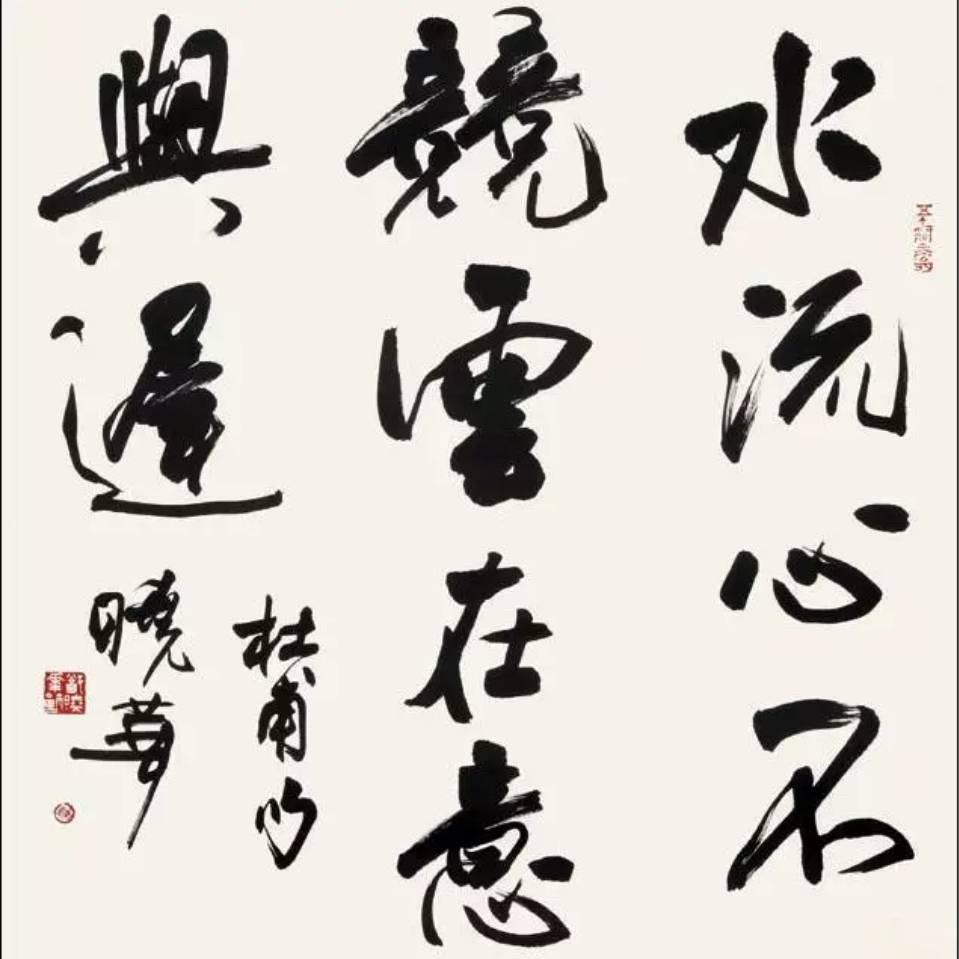 水流心不
競雲在意
與遲
杜甫句
曉華